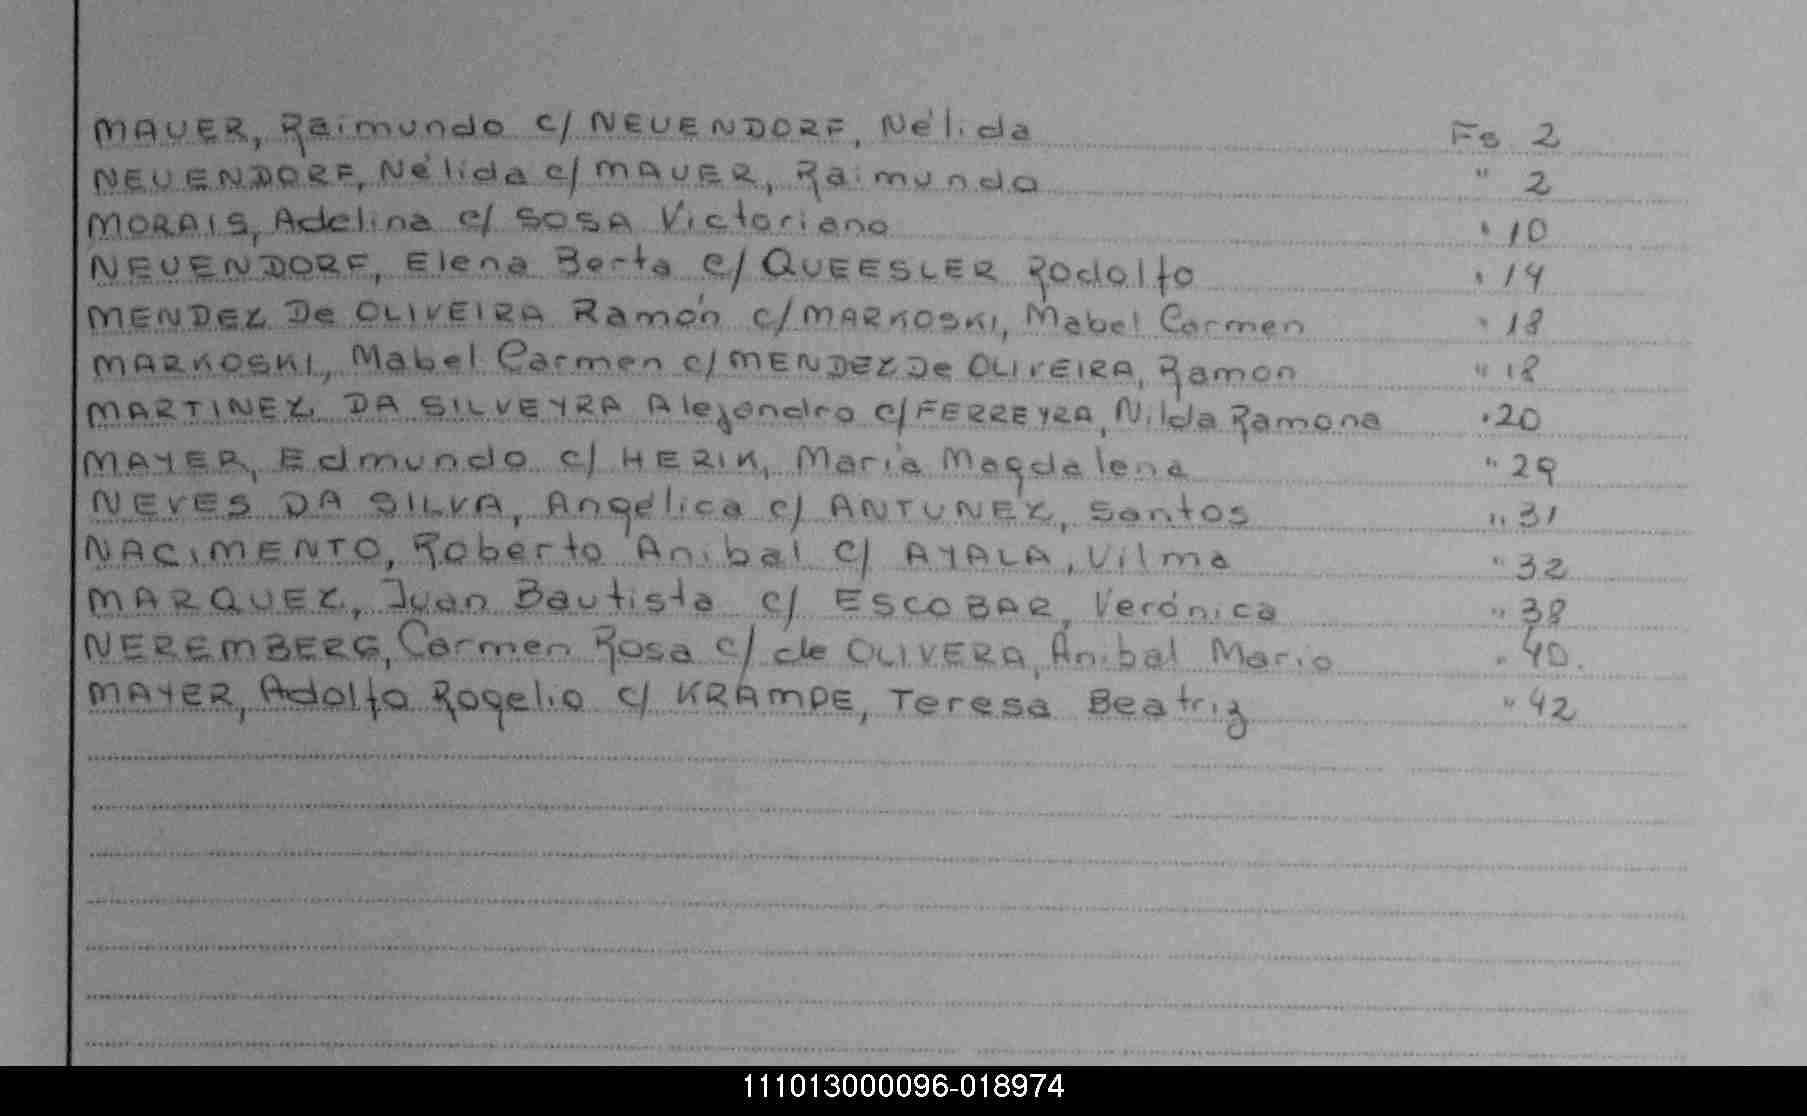 MAUER, Raimundo c/ NEUENDORF, Nélida Fs 2
NEUENDORF, Nélida c/ MAUER, Raimundo " 2
MORAIS, Adelina c/ SOSA Victoriano " 10
NEUENDORF, Elena Berta c/ QUEESLER Rodolfo " 14
MENDEZ De OLIVEIRA Ramón c/ MARKOSKI, Mabel Carmen " 18
MARKOSKI, Mabel Carmen c/ MENDEZ De OLIVEIRA, Ramon " 18
MARTINEZ DA SILVEYRA Alejandro c/ FERREYRA, Nilda Ramona " 20
MAYER, Edmundo c/ HERIK, María Magdalena " 29
NEVES DA SILVA, Angélica c/ ANTUNEZ, Santos " 31
NACIMENTO, Roberto Anibal c/ AYALA, Vilma " 32
MARQUEZ, Juan Bautista c/ ESCOBAR, Verónica " 38
NEREMBERG, Carmen Rosa c/ de OLIVERA, Anibal Mario " 40.
MAYER, Adolfo Rogelio c/ KRAMPE, Teresa Beatriz " 42
111013000096-018974